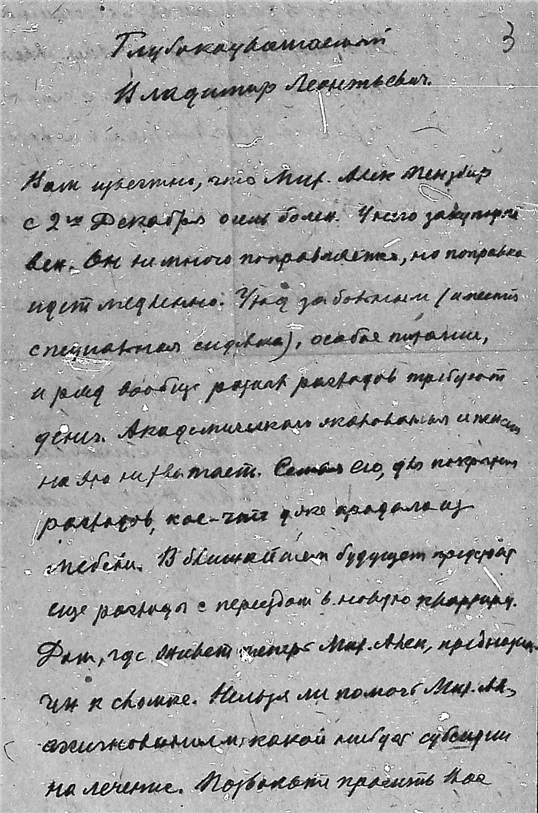 3
Глубокоуважаемый
Владимир Леонтьевич.
Вам известно, что Мих. Алек. Мензбир
с 2го Декабря очень болен. У него закупорка
вен. Он немного поправляется, но поправка
идет медленно. Уход за больным (имеется
специальная сиделка), особое питание,
и ряд вообще разных расходов требуют
денег. Академического жалования и пенсии
на это не хватает. Семья его, для покрытия
расходов, кое-что уже продала из
мебели. В ближайшем будущем предстоят
еще расходы с переездом в новую квартиру.
Дом, где живет теперь Мих. Алек., предназна-
чен к сломке. Нельзя ли помочь Мих. Ал.
ассигнованием какой нибудь субсидии
на лечение. Позвольте просить Вас